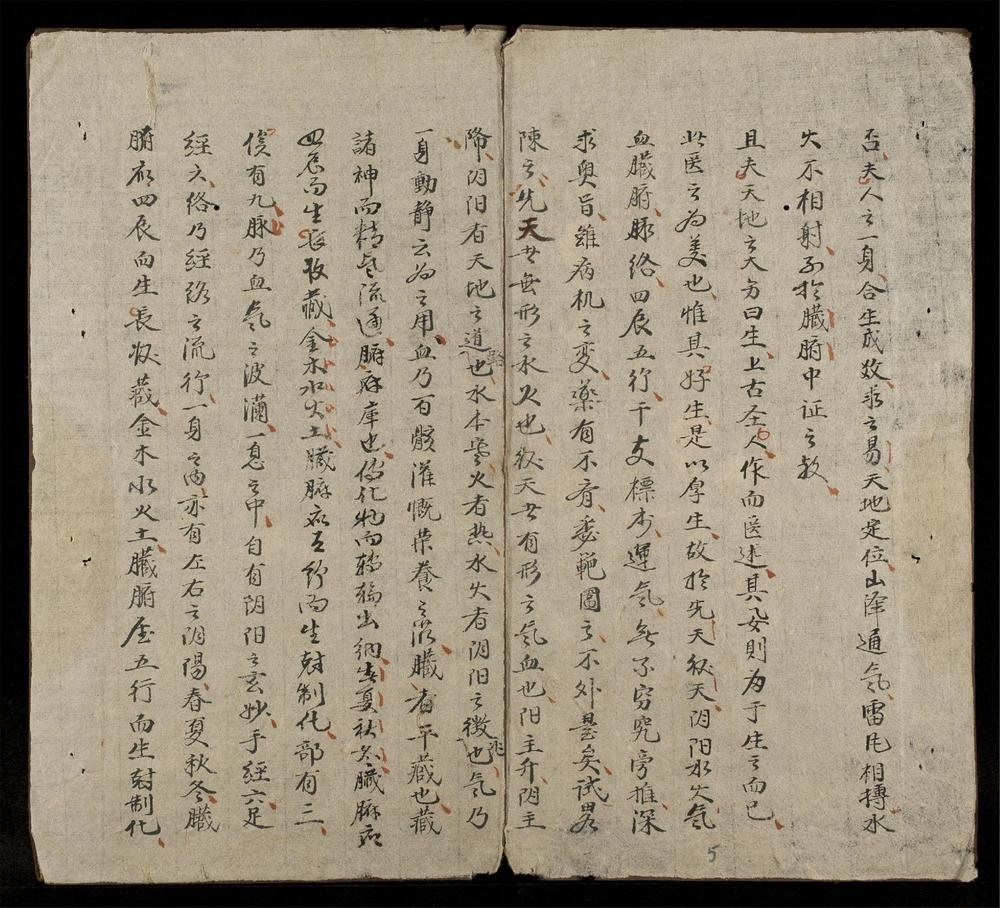 否夫人之一身合生成数求之易天地定位山泽通氣雷凨相摶水
火不相射系於臓腑中证之教
且夫天地之大方曰生上古圣人作而医述其要則为于生之而已
此医之为美也惟其好生是以厚生故於先天後天阴阳水火氣
血臓腑脉络四辰五行干支標本運氣無不穷究旁推深
求奥旨雖病机之变藥有不齐委範圍之不外是矣试畧
陳之先天其無形之水火也後天其有形之氣血也阳主升阴主
降阴阳有天地之道路也水本寒火者热水火者阴阳之徴兆也氣乃
一身動静云为之用血乃百骸灌慨荣養之滋臓者平藏也藏
諸神而精氣流通腑府庫也传化物而转輸出納春夏秋冬臓腑应
四辰而生長收藏金木水火土臓腑应五行而生尅制化部有三
候有九脉乃血氣之波瀾一息之中自有阴阳之玄妙手經六足
經六络乃經络之流行一身之内亦有左右之阴陽春夏秋冬臓
腑应四辰而生長收藏金木水火土臓腑应五行而生尅制化
5